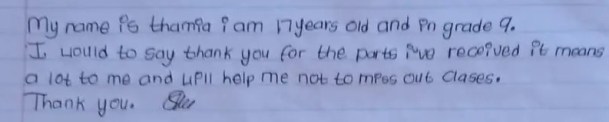 My name is thamia i am 17 years old and in grade 9.
I would to say thank you for the parts i've received it means
a lot to me and will help me not to miss out clases.
Thank you.